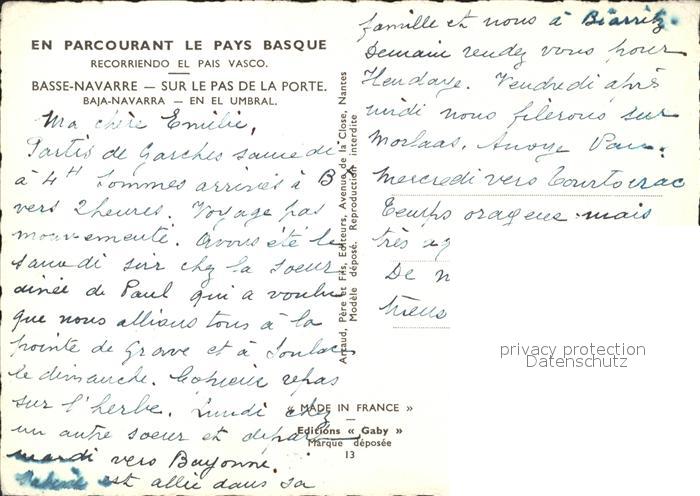 EN PARCOURANT LE PAYS BASQUE
RECORRIENDO EL PAIS VASCO.
BASSE-NAVARRE — SUR LE PAS DE LA PORTE.
BAJA-NAVARRA — EN EL UMBRAL.
Ma chère Emilie,
Partis de Garches samedi
à 4H sommes arrivés à BX
vers 2 heures. Voyage pas
mouvementé. Avons été le
samedi soir chez la soeur
ainée de Paul qui a voulu
que nous allions tous à la
pointe de Grave et à Soulac
le dimanche. Copieux repas
sur l'herbe. Lundi chez
un autre soeur et départ
mardi vers Bayonne.
est allée dans sa
famille et nous à Biarritz
Demain rendez vous pour
Hendaye. Vendredi après
midi nous filerons sur
Morlaas. Anoye Pau.
Mercredi vers Tourtoirac
Temps orageux mais
très ag
De n
trens
Artaud, Père et Fils, Editeurs, Avenue de la Close, Nantes
Modèle déposé. Reproduction interdite
« MADE IN FRANCE »
Editions « Gaby »
Marque déposée
13
privacy protection
Datenschutz